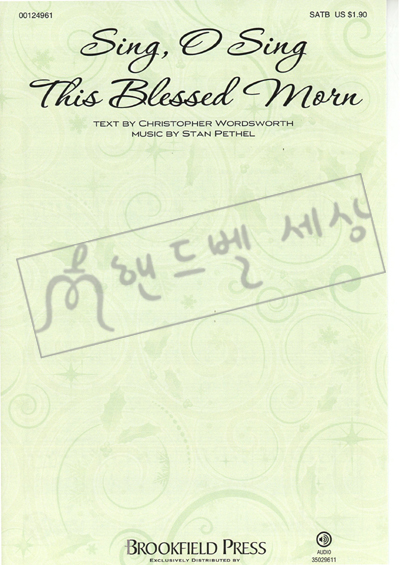 00124961
SATB US $1.90
Sing, O Sing
This Blessed Morn
TEXT BY CHRISTOPHER WORDSWORTH
MUSIC BY STAN PETHEL
핸드벨 세상
BROOKFIELD PRESS
EXCLUSIVELY DISTRIBUTED BY
AUDIO
35029611